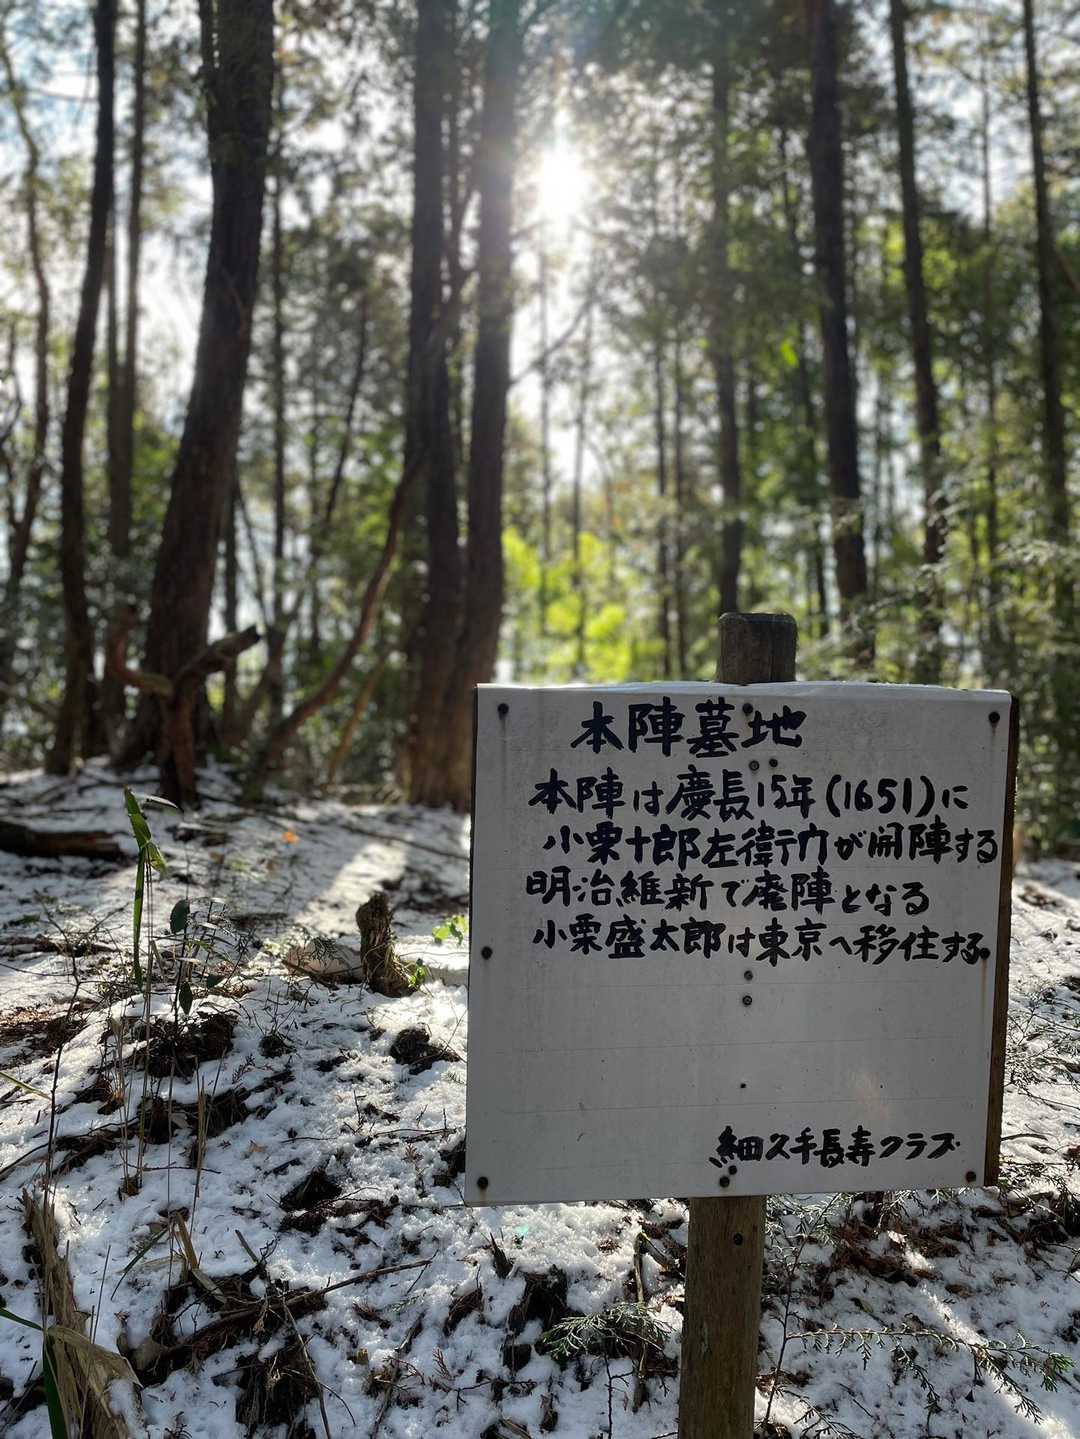 本陣墓地
本陣は慶長15年(1651)に
小栗十郎左衛門が開陣する
明治維新で廃陣となる
小栗盛太郎は東京へ移住する
細久手長寿クラブ